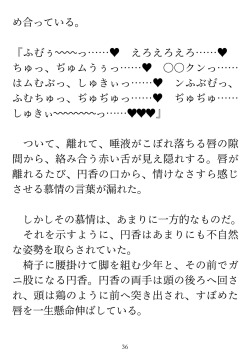 め合っている。
『ふむぅ~~~っ……♥　えろえろえろ……♥
ちゅっ、ぢゅムうぅっ……♥　○○クンっ……♥
はムむぶっ、しゅきぃっ……♥　ンふぶむっ、
ふむちゅっ、ぢゅぢゅっ……♥　ぢゅぢゅ……
しゅきぃ~~~~~~~っ……♥♥♥』
　ついて、離れて、唾液がこぼれ落ちる唇の隙
間から、絡み合う赤い舌が見え隠れする。唇が
離れるたび、円香の口から、情けなさすら感じ
させる慕情の言葉が漏れた。
　しかしその慕情は、あまりに一方的なものだ。
　それを示すように、円香はあまりにも不自然
な姿勢を取らされていた。
　椅子に腰掛けて脚を組む少年と、その前でガ
ニ股になる円香。円香の両手は頭の後ろへ回さ
れ、頭は鶏のように前へ突き出され、すぼめた
唇を一生懸命伸ばしている。
36